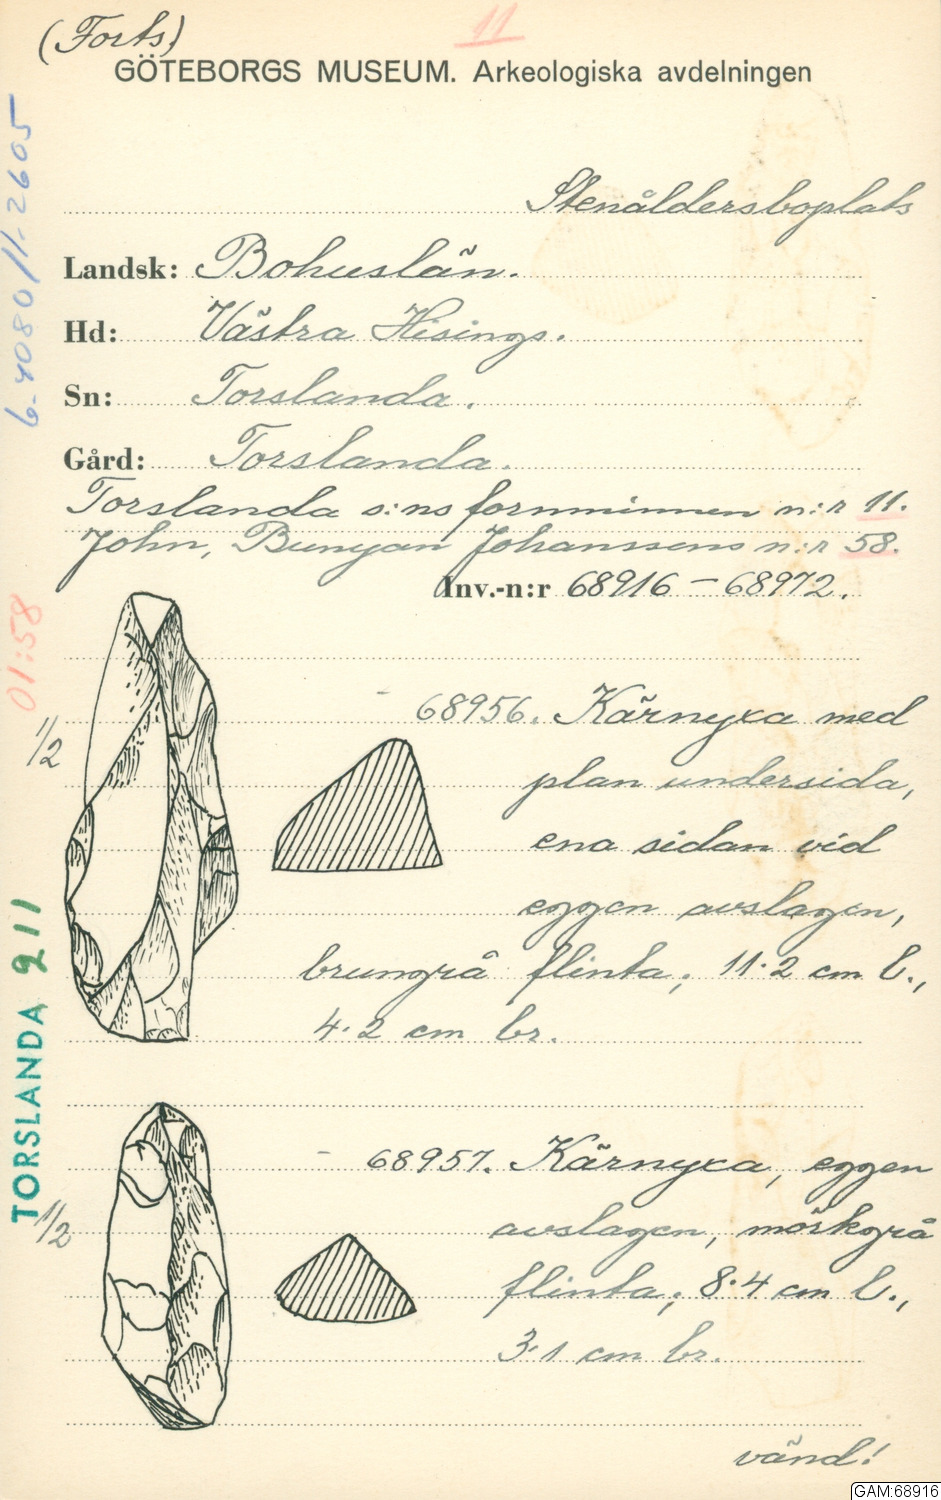 (Forts)
11
GÖTEBORGS MUSEUM. Arkeologiska avdelningen
Stenåldersboplats
Landsk: Bohuslän.
Hd: Västra Hisings.
Sn: Torslanda.
Gård: Torslanda.
Torslanda s:ns fornminnen n:r 11.
John, Bunyan Johanssons n:r 58.
Inv.-n:r 68916-68972.
68956. Kärnyxa med
plan undersida,
ena sidan vid
eggen avslagen,
brungrå flinta; 11.2 cm l.,
4.2 cm br.
68957. Kärnyxa, eggen
avslagen, mörkgrå
flinta; 8.4 cm l.,
3.1 cm br.
vänd!
1/2
1/2
01:58
TORSLANDA 211
GAM:68916